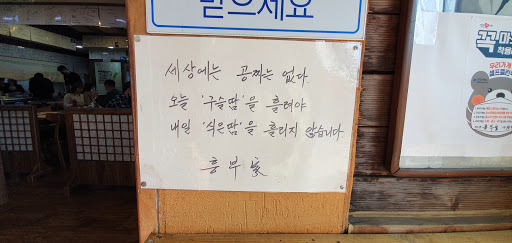 믿으세요
세상에는 공짜는 없다
오늘 '구슬땀'을 흘려야
내일 '식은땀'을 흘리지 않습니다
흥부家
꼭 마
착용
우리가게
셀프클린